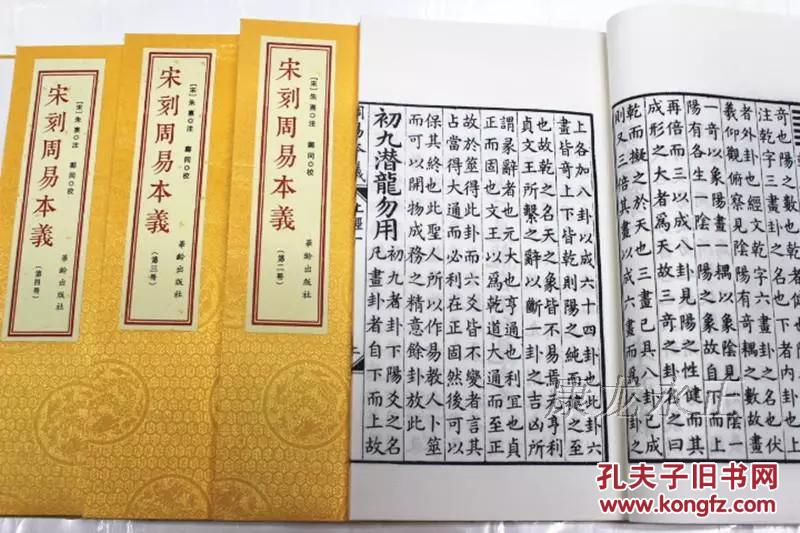 宋刻周易本義
[宋]朱熹◎注
鄭同◎校
華齡出版社
(第四冊)
宋刻周易本義
[宋]朱熹◎注
鄭同◎校
華齡出版社
(第三冊)
宋刻周易本義
[宋]朱熹◎注
鄭同◎校
華齡出版社
(第二冊)
者外卦也經文乾字六畫卦之名也伏
羲仰觀俯察見陰陽有奇耦之數故畫
一奇以象陽畫一耦以象陰見一陰一
陽有各生一陰一陽之象故自下而上
再倍而三以成八卦見陽之性健而其
成形之大者爲天故三奇之卦名之曰
乾而擬之於天也三畫已具八卦已成
則又三倍其畫以成六畫而於八卦之
上各加八卦以成六十四卦也此卦六
畫皆奇上下皆乾則陽之純而健之至
也故乾之名天之象皆不易焉元亨利
貞文王所繫之辭以斷一卦之吉凶所
謂彖辭者也元大也亨通也利宜也貞
正而固也文王以爲乾道大通而至正
故於筮得此卦而六爻皆不變者言其
占當得大通而必利在正固然後可以
保其終也此聖人所以作易教人卜筮
而可以開物成務之精意餘卦放此
初九潛龍勿用
初九者卦下陽爻之名
凡畫卦者自下而上故
周易本義
上經一
孔夫子旧书网
www.kongfz.com